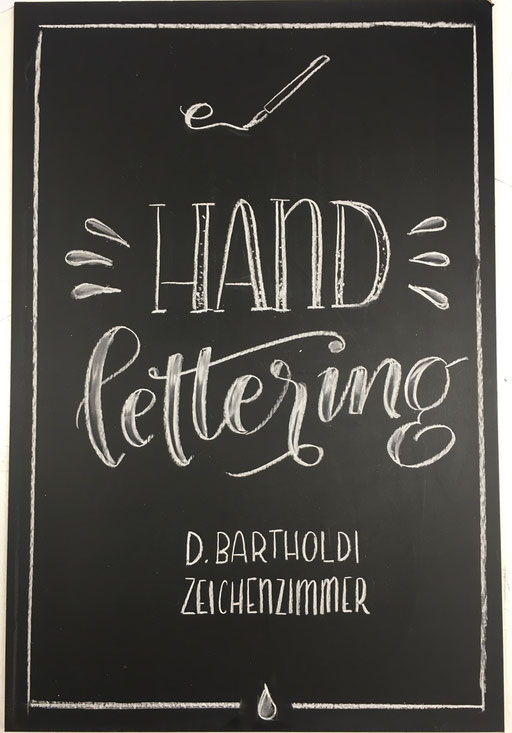 e
HAND
lettering
D. BARTHOLDI
ZEICHENZIMMER